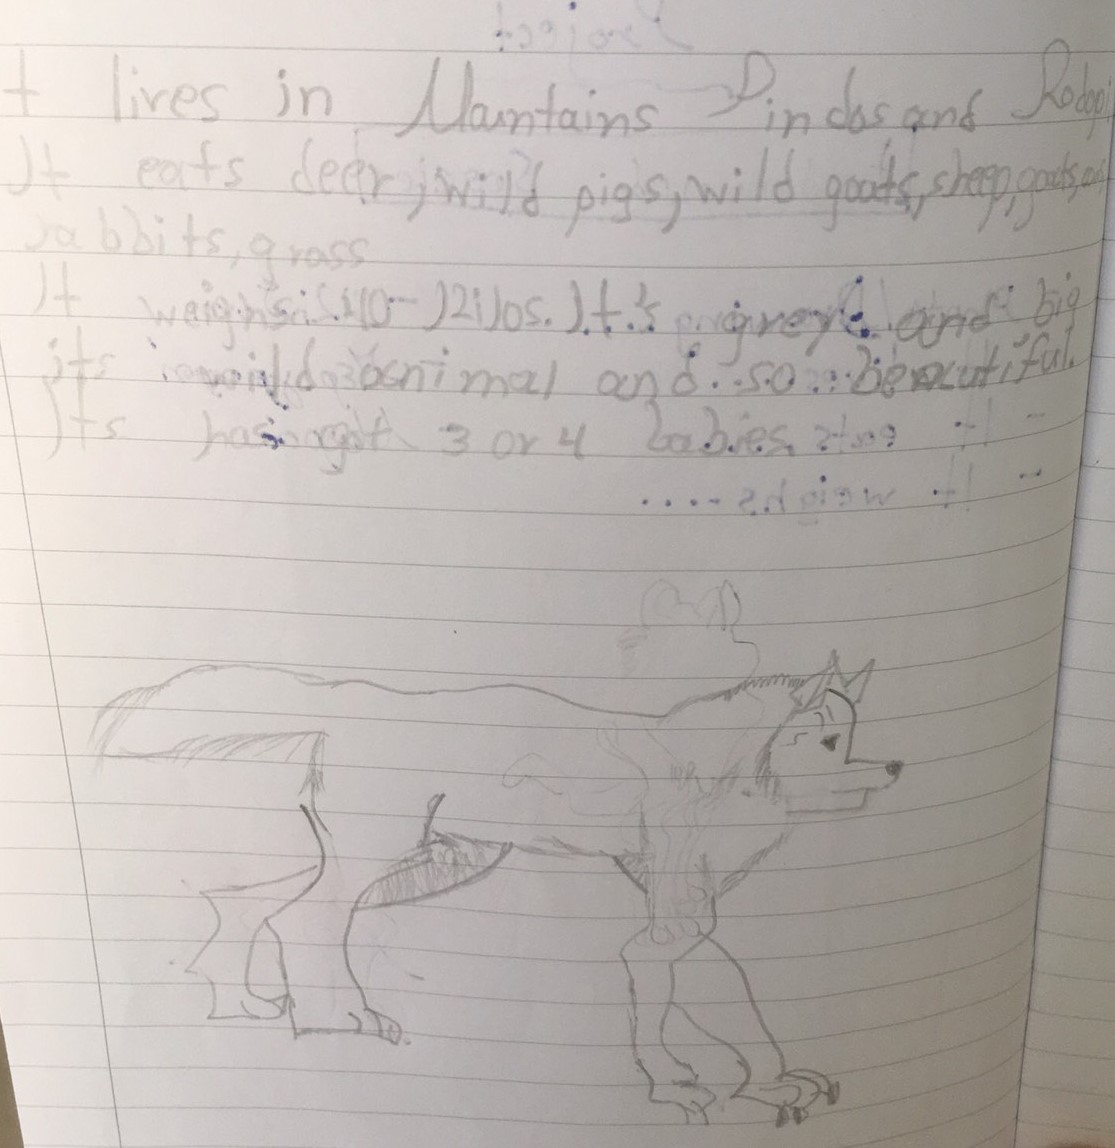 t lives in Mauntains Pindos and Rodopi
It eats deer, wild pigs, wild goats, sheep, goats,
rabbits, grass
It weighs It's grey and big
its wild animal and so beautiful.
Its has got 3 or 4 babies